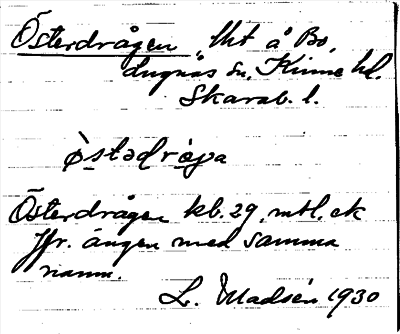 Österdrågen, lht å Bo,
Lugnås sn, Kinne hd.
Skarab. l.
östədråga
Österdrågen kb. 29, mtl. ek
Jfr. ängen med samma
namn.
L. Madsén 1930